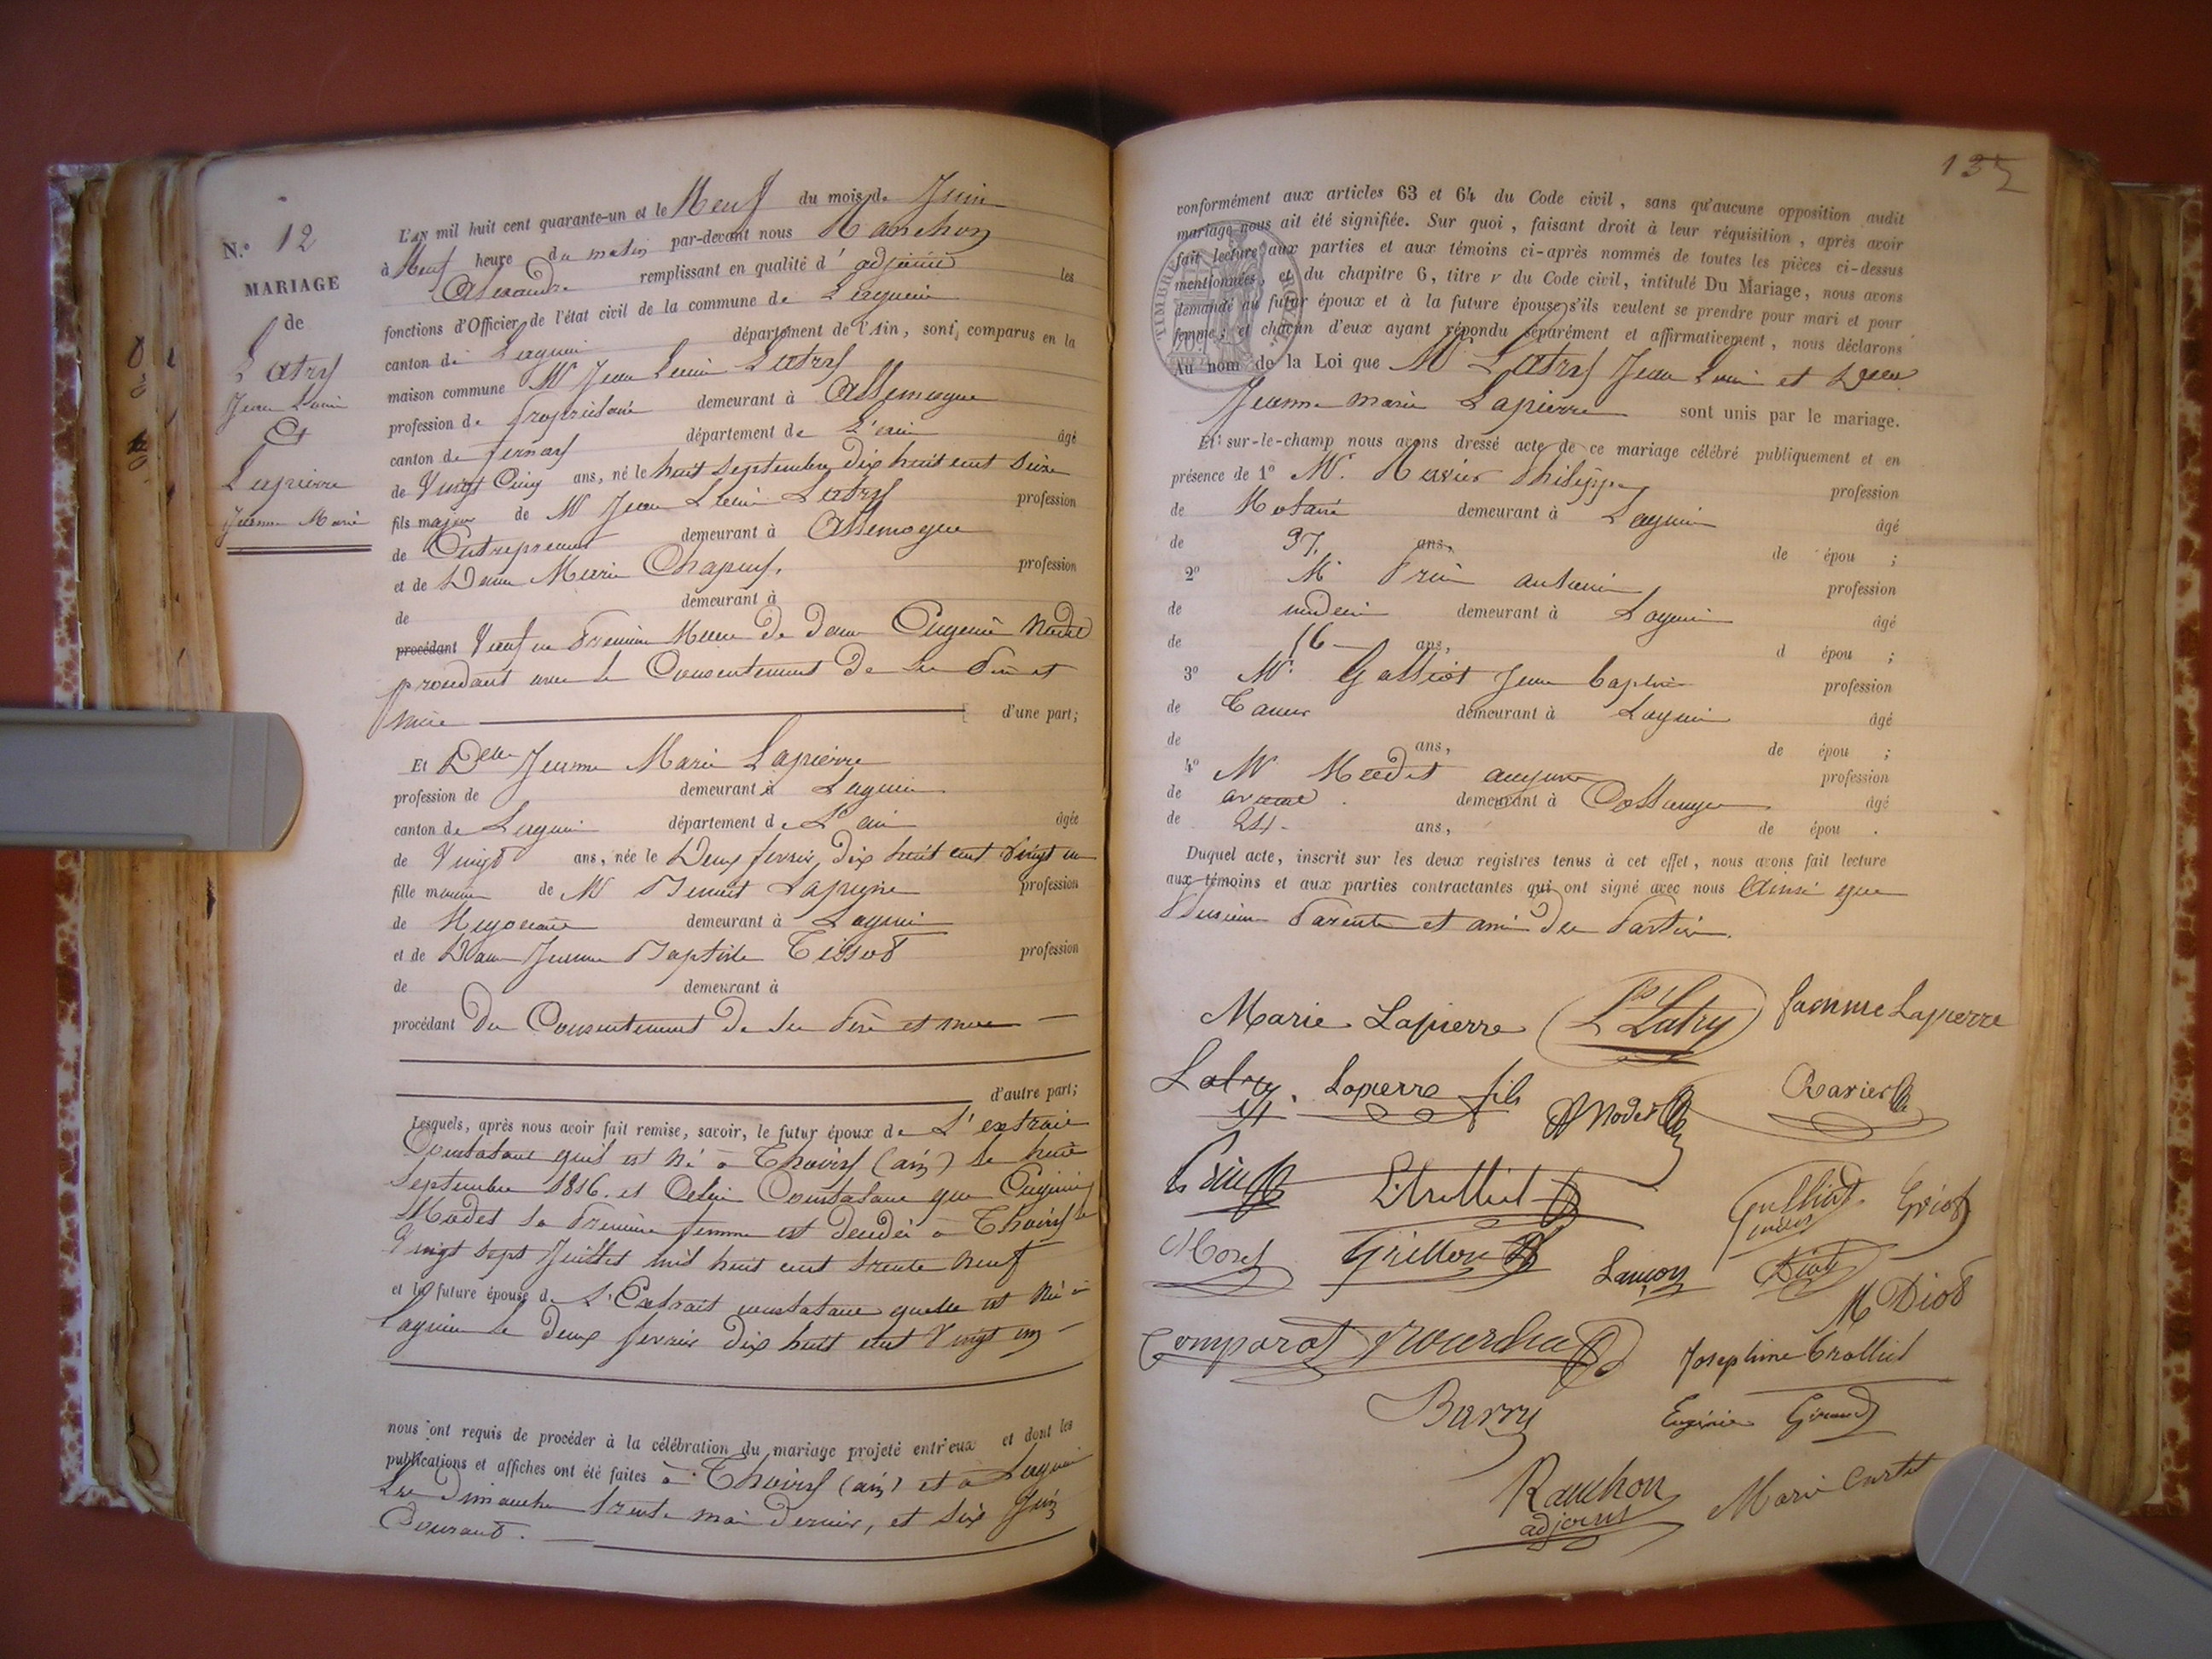 N.º 12
MARIAGE
de
Latry
Jean Louis
Et
Lapierre
Jeanne Marie
L'an mil huit cent quarante-un et le Neuf du mois de Juin
à Neuf heure du matin par-devant nous Ranchon
Alexandre remplissant en qualité d'adjoint les
fonctions d'Officier de l'état civil de la commune de Lagnieu
canton de Lagnieu département de l'Ain, sont comparus en la
maison commune Mr Jean Louis Latry
profession de Propriétaire demeurant à Allemogne
canton de fernay département de L'ain âgé
de Vingt Cinq ans, né le huit septembre dix huit cent Seize
fils majeur de Mr Jean Louis Latry profession
de Entrepreneur demeurant à Allemogne
et de Dame Marie Chapuy. profession
de demeurant à
procédant Veuf en Premiere Noce de dame Eugenie Nodet
procedant avec le Consentement de ses Père et
mère d'une part;
Et Delle Jeanne Marie Lapierre
profession de demeurant à Lagnieu
canton de Lagnieu département de L'ain âgée
de Vingt ans, née le Deux fevrier dix huit cent vingt un
fille mineure de Mr Benoit Lapierre profession
de Negociant demeurant à Lagnieu
et de Dame Jeanne Baptiste Tissot profession
de demeurant à
procédant du Consentement de ses Père et mere
d'autre part;
Lesquels, après nous avoir fait remise, savoir, le futur époux de L'extrait
Constatant qu'il est né à Thoiry (ain) le huit
septembre 1816. et Celui Constatant que Eugenie
Nodet sa Premiere femme est decedée à Thoiry le
Vingt sept Juillet mil huit cent trente neuf
et la future épouse de L'Extrait constatant quelle est née à
Lagnieu le deux fevrier dix huit cent Vingt un
nous ont requis de procéder à la célébration du mariage projeté entr'eux et dont les
publications et affiches ont été faites à Thoiry (ain) et à Lagnieu
les dimanches trente mai dernier, et six Juin
Courant.
135
conformément aux articles 63 et 64 du Code civil, sans qu'aucune opposition audit
mariage nous ait été signifiée. Sur quoi, faisant droit à leur réquisition, après avoir
fait lecture aux parties et aux témoins ci-après nommés de toutes les pièces ci-dessus
mentionnées, et du chapitre 6, titre v du Code civil, intitulé Du Mariage, nous avons
demandé au futur époux et à la future épouse s'ils veulent se prendre pour mari et pour
femme; et chacun d'eux ayant répondu séparément et affirmativement, nous déclarons
Au nom de la Loi que Mr Latry Jean Louis et Delle
Jeanne Marie Lapierre sont unis par le mariage.
Et sur-le-champ nous avons dressé acte de ce mariage célébré publiquement et en
présence de 1º Mr. Ravier Philippe profession
de Notaire demeurant à Lagnieu âgé
de 37 ans, de épou ;
2º Mr antoine profession
de medecin demeurant à Lagnieu âgé
de ans, d épou ;
3º Mr. Jean baptiste profession
de Taneur demeurant à Lagnieu âgé
de ans, de épou ;
4º Mr Nodet profession
de avocat demeurant à Collonges âgé
de 24 ans, de épou .
Duquel acte, inscrit sur les deux registres tenus à cet effet, nous avons fait lecture
aux témoins et aux parties contractantes qui ont signé avec nous Ainsi que
Plusieurs Parents et amis des Parties.
Marie Lapierre Ls Latry Jeanne Lapierre
Latry Lapierre fils Nodet Ravier
Griot
Morel Grillon Lançon Diot
M Diot
Comparat Josephine Trolliet
Barry Eugénie Giraud
Ranchon Marie Curtet
adjoint
TIMBRE ROYAL